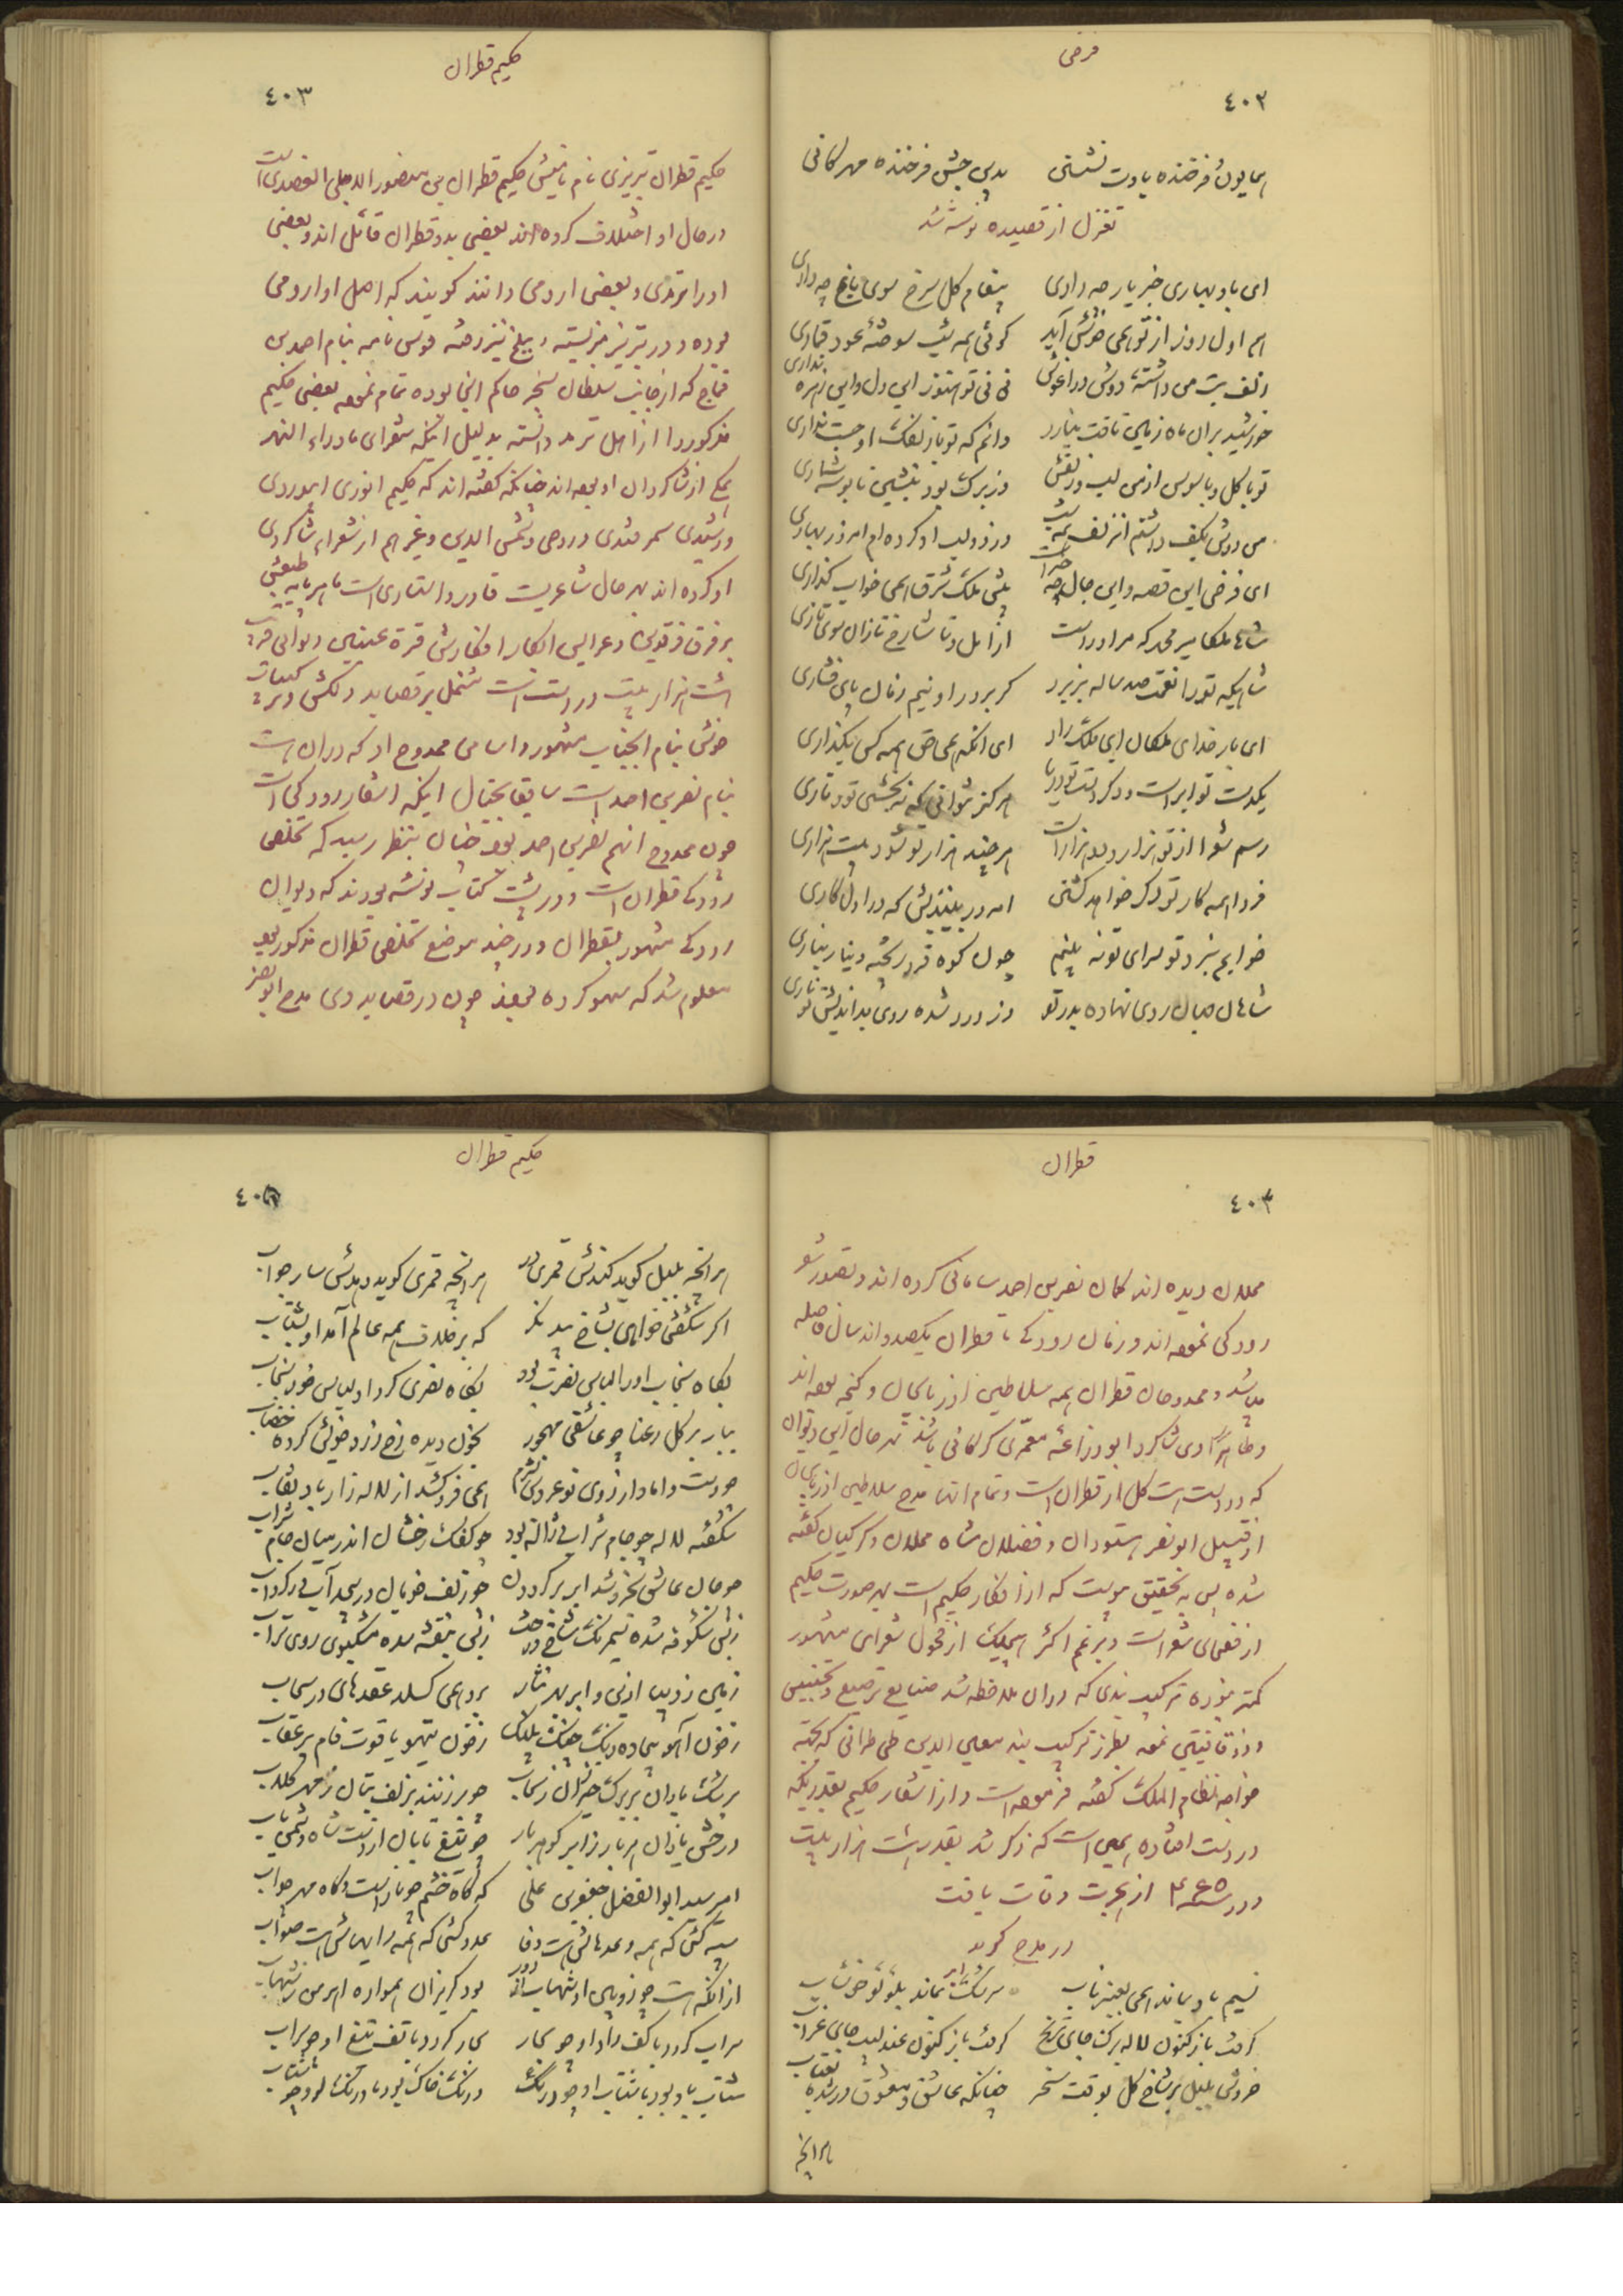 فرخی
٤٠٢
همایون فرخنده بادت نشستن بدین جشن فرخنده مهرکانی
تغزل از قصیده نوشته شد
ای باد بهاری خبر یار چه داری پیغام کل سرخ سوی باغ چه داری
هم اول روز از تو همی خوش آید کوئی همه شب سوخته عود قماری
زلف بت من داشته دوش در اغوش نی نی تو هنوز این دل و این زهره نداری
خورشید بران ماه زمین تافت نیارد دانم که تو با زلفک او جست نیاری
تو با کل و با سوسن از من لب و زلفش
من دوش بکف داشتم ان زلف همه شب وز دو لب او کرده ام امروز بهاری
ای فرخی این قصه و این حال چه چیز است پیش ملک شرق همی خواب کذاری
شاه ملکان میر محمد که مر او راست از امل و تا شارخ تازان سوی تازی
شاهیکه تو را نعمت صد ساله بریزد کر بر در او نیم زمان پای فشاری
ای بار خدای ملکان ای ملک راد ای انکه همی حق همه کس بکذاری
یکدست تو ابر است و دکر دست تو دریا هرکز نتوانی که نه بخشی و نباری
رسم شعرا از تو هزار و دو هزار است هر چند هزار تو شود بیست هزاری
فردا همه کار تو دکر خواهد کشتن امروز بیندیش که در اول کاری
خواهم به نبرد تو سرای تو نه بینم چون کوه فرو ریخته دینار نیاری
شاهان جهان روی نهاده بدر تو وز درد شده روی بداندیش تو تاری
حکیم قطران
٤٠٣
حکیم قطران تبریزی نام نامیش حکیم قطران بن منصور الاجلی العضدی است
در حال او اختلاف کرده اند بعضی بدو قطران قائل اند و بعضی
او را ترمدی و بعضی ارومی دانند کویند که اصل او ارومی
بوده و در تبریز میزیسته و ببلخ نیز رفته قوس نامه بنام احمد بن
قماج که از جانب سلطان سنجر حاکم بلخ بوده تمام نموده بعضی حکیم
مذکور را از اهل ترمد دانسته بدلیل اینکه شعرای ماوراء النهر
یکی از شاکردان او بوده اند چنانکه کفته اند که حکیم انوری ابیوردی
و رشیدی سمرقندی و روحی و شمس الدین و غیر هم از شعراء شاکردی
او کرده اند بهر حال شاعریست قادر و استادی است ماهر پایه طبعش
بر فرق فرقدین و عرایس ابکار افکارش قرة عینین دیوانی قریب
هشت هزار بیت در دست است مشتمل بر قصاید دلکش و ترکیبات
خوش بنام انجناب مشهور و اسامی ممدوح او که در ان است
بنام نصر بن احمد است سابقا بخیال اینکه اشعار رودکی است
چون ممدوح انهم نصر بن احمد بود چنان بنظر رسید که تخلص
رودکی قطران است و در پشت کتاب نوشته بودند که دیوان
رودکی مشهور بقطران و در چند موضع تخلص قطران مذکور بود
معلوم شد که سهو کرده بودند چون در قصاید وی مدح ابو نصر
قطران
٤٠٣
مملان دیده اند کمان نصر بن احمد سامانی کرده اند و تصور شعر
رودکی نموده اند و زمان رودکی تا قطران یکصد و اند سال فاصله
میباشد و ممدوحان قطران همه سلاطین اذربایجان و کنجه بوده اند
و ظاهرا وی شاکرد ابو ذراعه معمری کرکانی باشد بهر حال این دیوان
که در دست است کل از قطران است و تمام انها مدح سلاطین اذربایجان
از قبیل ابو نصر و فضلان شاه مملان و کرکیان کفته
شده پس به تحقیق پیوست که از افکار حکیم است بهر صورت حکیم
از فصحای شعراست و بزعم اکثر هیچیک از فحول شعرای مشهور
کمتر نبوده ترکیب بندی که دران ملاحظه شد صنایع ترصیع و تجنیس
و ذو قافیتین نموده بطرز ترکیب بند معین الدین طنطرانی که بجهة
خواجه نظام الملک کفته فرموده است و از اشعار حکیم بقدریکه
در دست افتاده همین است که ذکر شد بقدر هشت هزار بیت
و در سنه ٤٦٥ از هجرت وفات یافت
در مدح کوید
نسیم باد بماند همی بعنبر ناب سرشک ابر نماند بلؤلؤ خوشاب
کرفت باز کنون لاله برک جای ترنج کرفت باز کنون عندلیب جای غراب
خروش بلبل بر شاخ کل بوقت سحر چنانکه عاشق و معشوق در شده بعتاب
هر انچه
حکیم قطران
٤٠٤
هر انچه بلبل کوید کندش قمری رد هر انچه قمری کوید دهدش سار جواب
اکر شکفتی خواهی بشاخ بید نکر که بر خلاف همه عالم آمد او بشتاب
بکاه سنجاب اورا لباس نصرت بود بکاه نصری کرد او لباس خود سنجاب
ببار بر کل رعنا چو عاشق مهجور بخون دیده رخ زرد خویش کرده خضاب
چو دست داماد از روی نو عروس بشرم همی فرو کشد از لاله زار باد نقاب
شکفته لاله چو جام شراب و ژاله بود چو کفک رخشان اندر میان جام شراب
چو جان عاشق بخروشد ابر بر کردون چو زلف خوبان در بیم آب در کرداب
ز بس شکوفه شده سیم رنک شاخ درخت ز بس بنفشه شده مشکبوی روی تراب
زمین ز دیبا اذین و ابر بهر نثار برو همی کسلد عقدهای در سحاب
ز خون آهو بیجاده رنک چنک پلنک ز خون تیهو یاقوت فام پر عقاب
سرشک باران بر برک خیزران ز سحاب چو بر زنند بزلف بتان ز مهر کلاب
درخش یازان هر بار ز ابر کوهر بار چو تیغ تابان از دست شاه دشمن تاب
امیر سید ابو الفضل جعفر بن علی که کاه خشم چو نار است و کاه مهر چو آب
سپه کشی که همه وعدهاش هست وفا عدو کشی که همه رایهاش هست صواب
از انکه هست چو زوبین او شهاب از دور بود کریزان همواره اهرمن ز شهاب
سراب کردد با کف راد او چو بحار بحار کردد با تف تیغ او چو سراب
شتاب باد بود با شتاب او چو درنک درنک خاک بود با درنک او چو شتاب